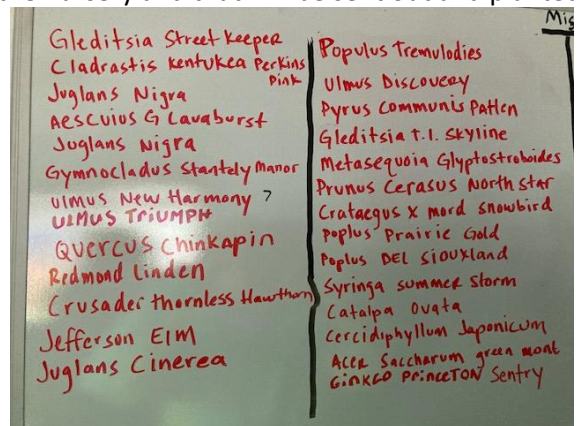 Mis
Gleditsia Street Keeper
Cladrastis Kentukea Perkins
Pink
Juglans Nigra
Aesculus G Lavaburst
Juglans Nigra
Gymnocladus Stantely Manor
Ulmus New Harmony ?
ULMUS TRiUMPH
Quercus Chinkapin
Redmond Linden
Crusader thornless Hawthorn
Jefferson Elm
Juglans Cinerea
Populus Tremulodies
Ulmus Discovery
Pyrus Communis Patten
Gleditsia t.i. Skyline
Metasequoia Glyptostroboides
Prunus Cerasus North Star
Crataegus x mord snowbird
Poplus Prairie Gold
Poplus DEL Siouxland
Syringa summer Storm
Catalpa Ovata
Cercidiphyllum Japonicum
Acer Saccharum green mont
Ginkgo PRINCETON Sentry